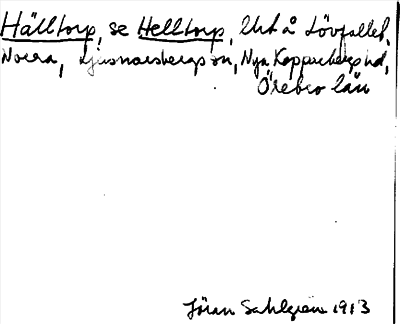 Hälltorp, se Helltorp, Utt å Lövfallet,
Norra, Ljusnarsbergs sn, Nya Kopparbergs hd,
Örebro län
Jöran Sahlgren 1913